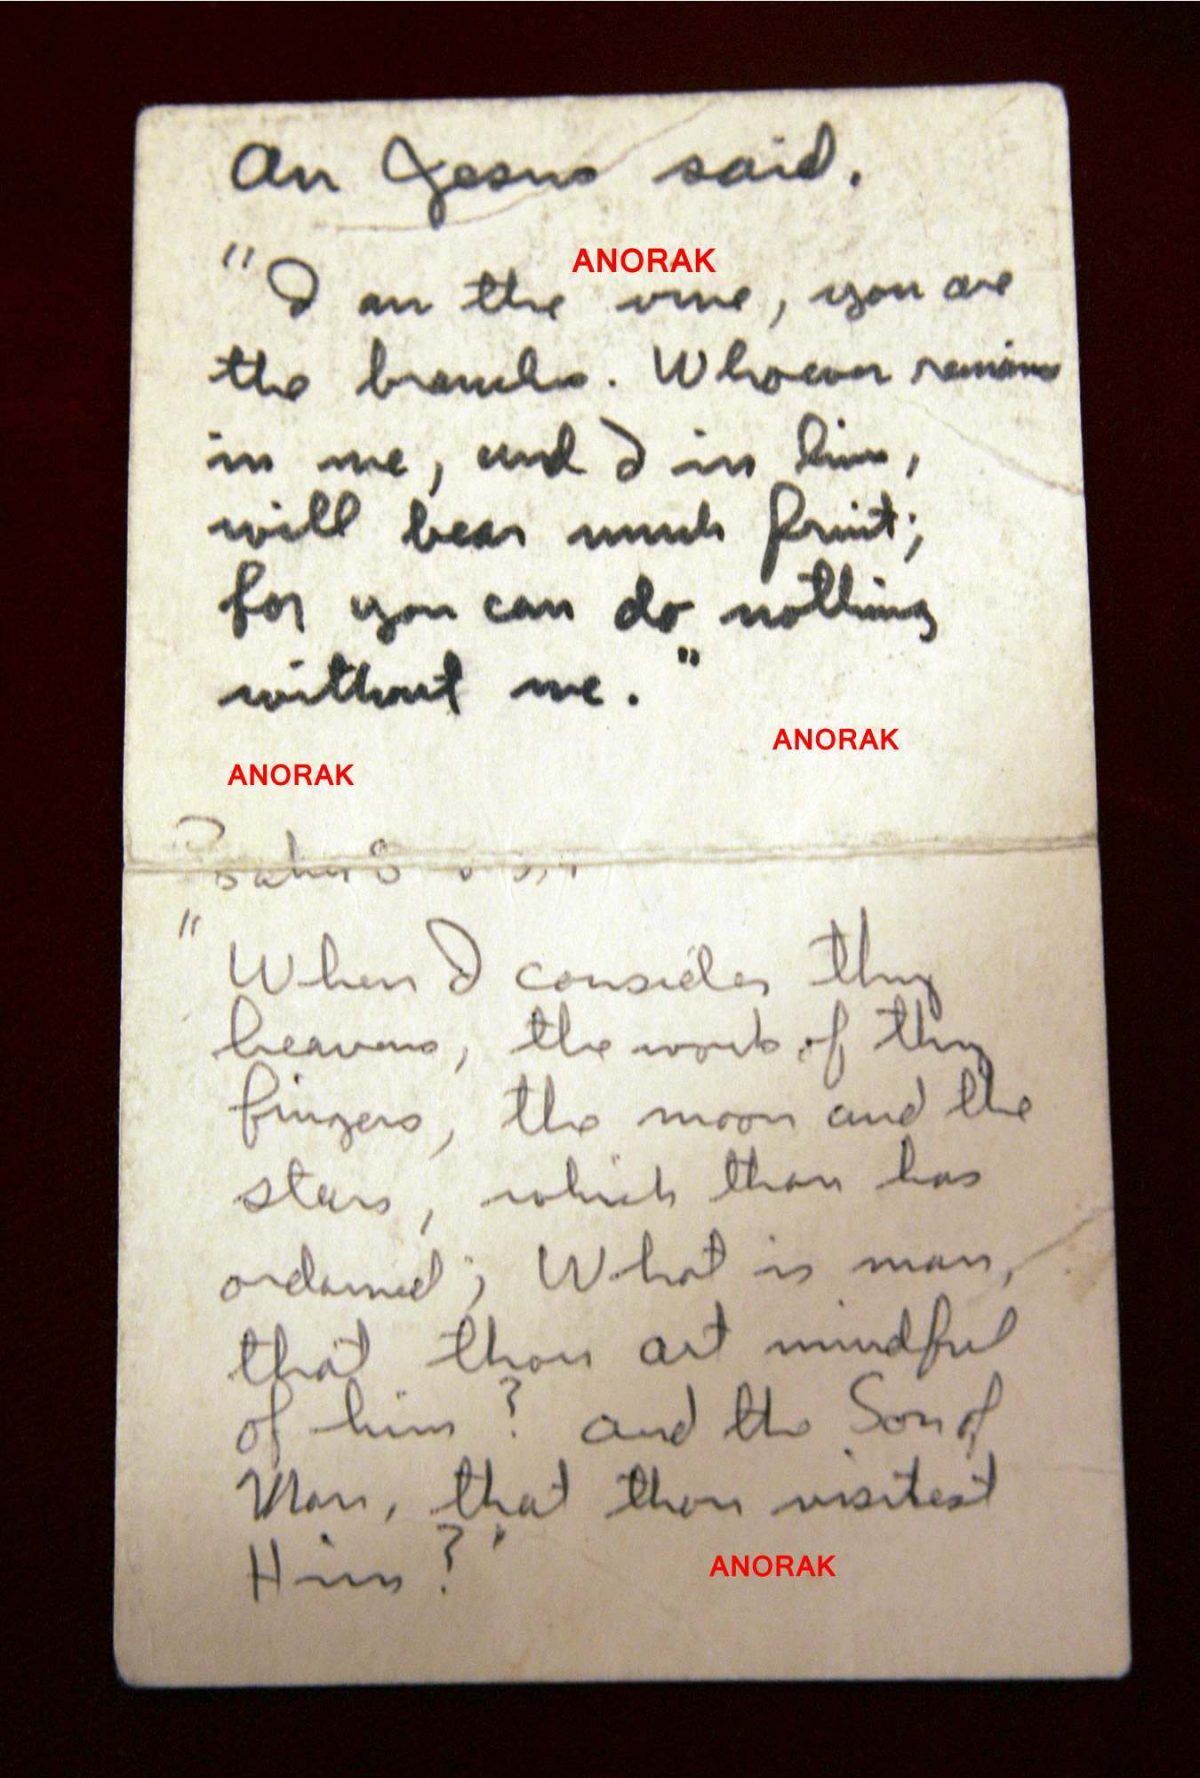 As Jesus said.
ANORAK
"I am the vine, you are
the branches. Whoever remains
in me, and I in him,
will bear much fruit;
for you can do nothing
without me."
ANORAK
ANORAK
Psalm 8 v 3,4
"When I consider thy
heavens, the work of thy
fingers, the moon and the
stars, which thou has
ordained; What is man,
that thou art mindful
of him? and the Son of
Man, that thou visitest
Him?"
ANORAK